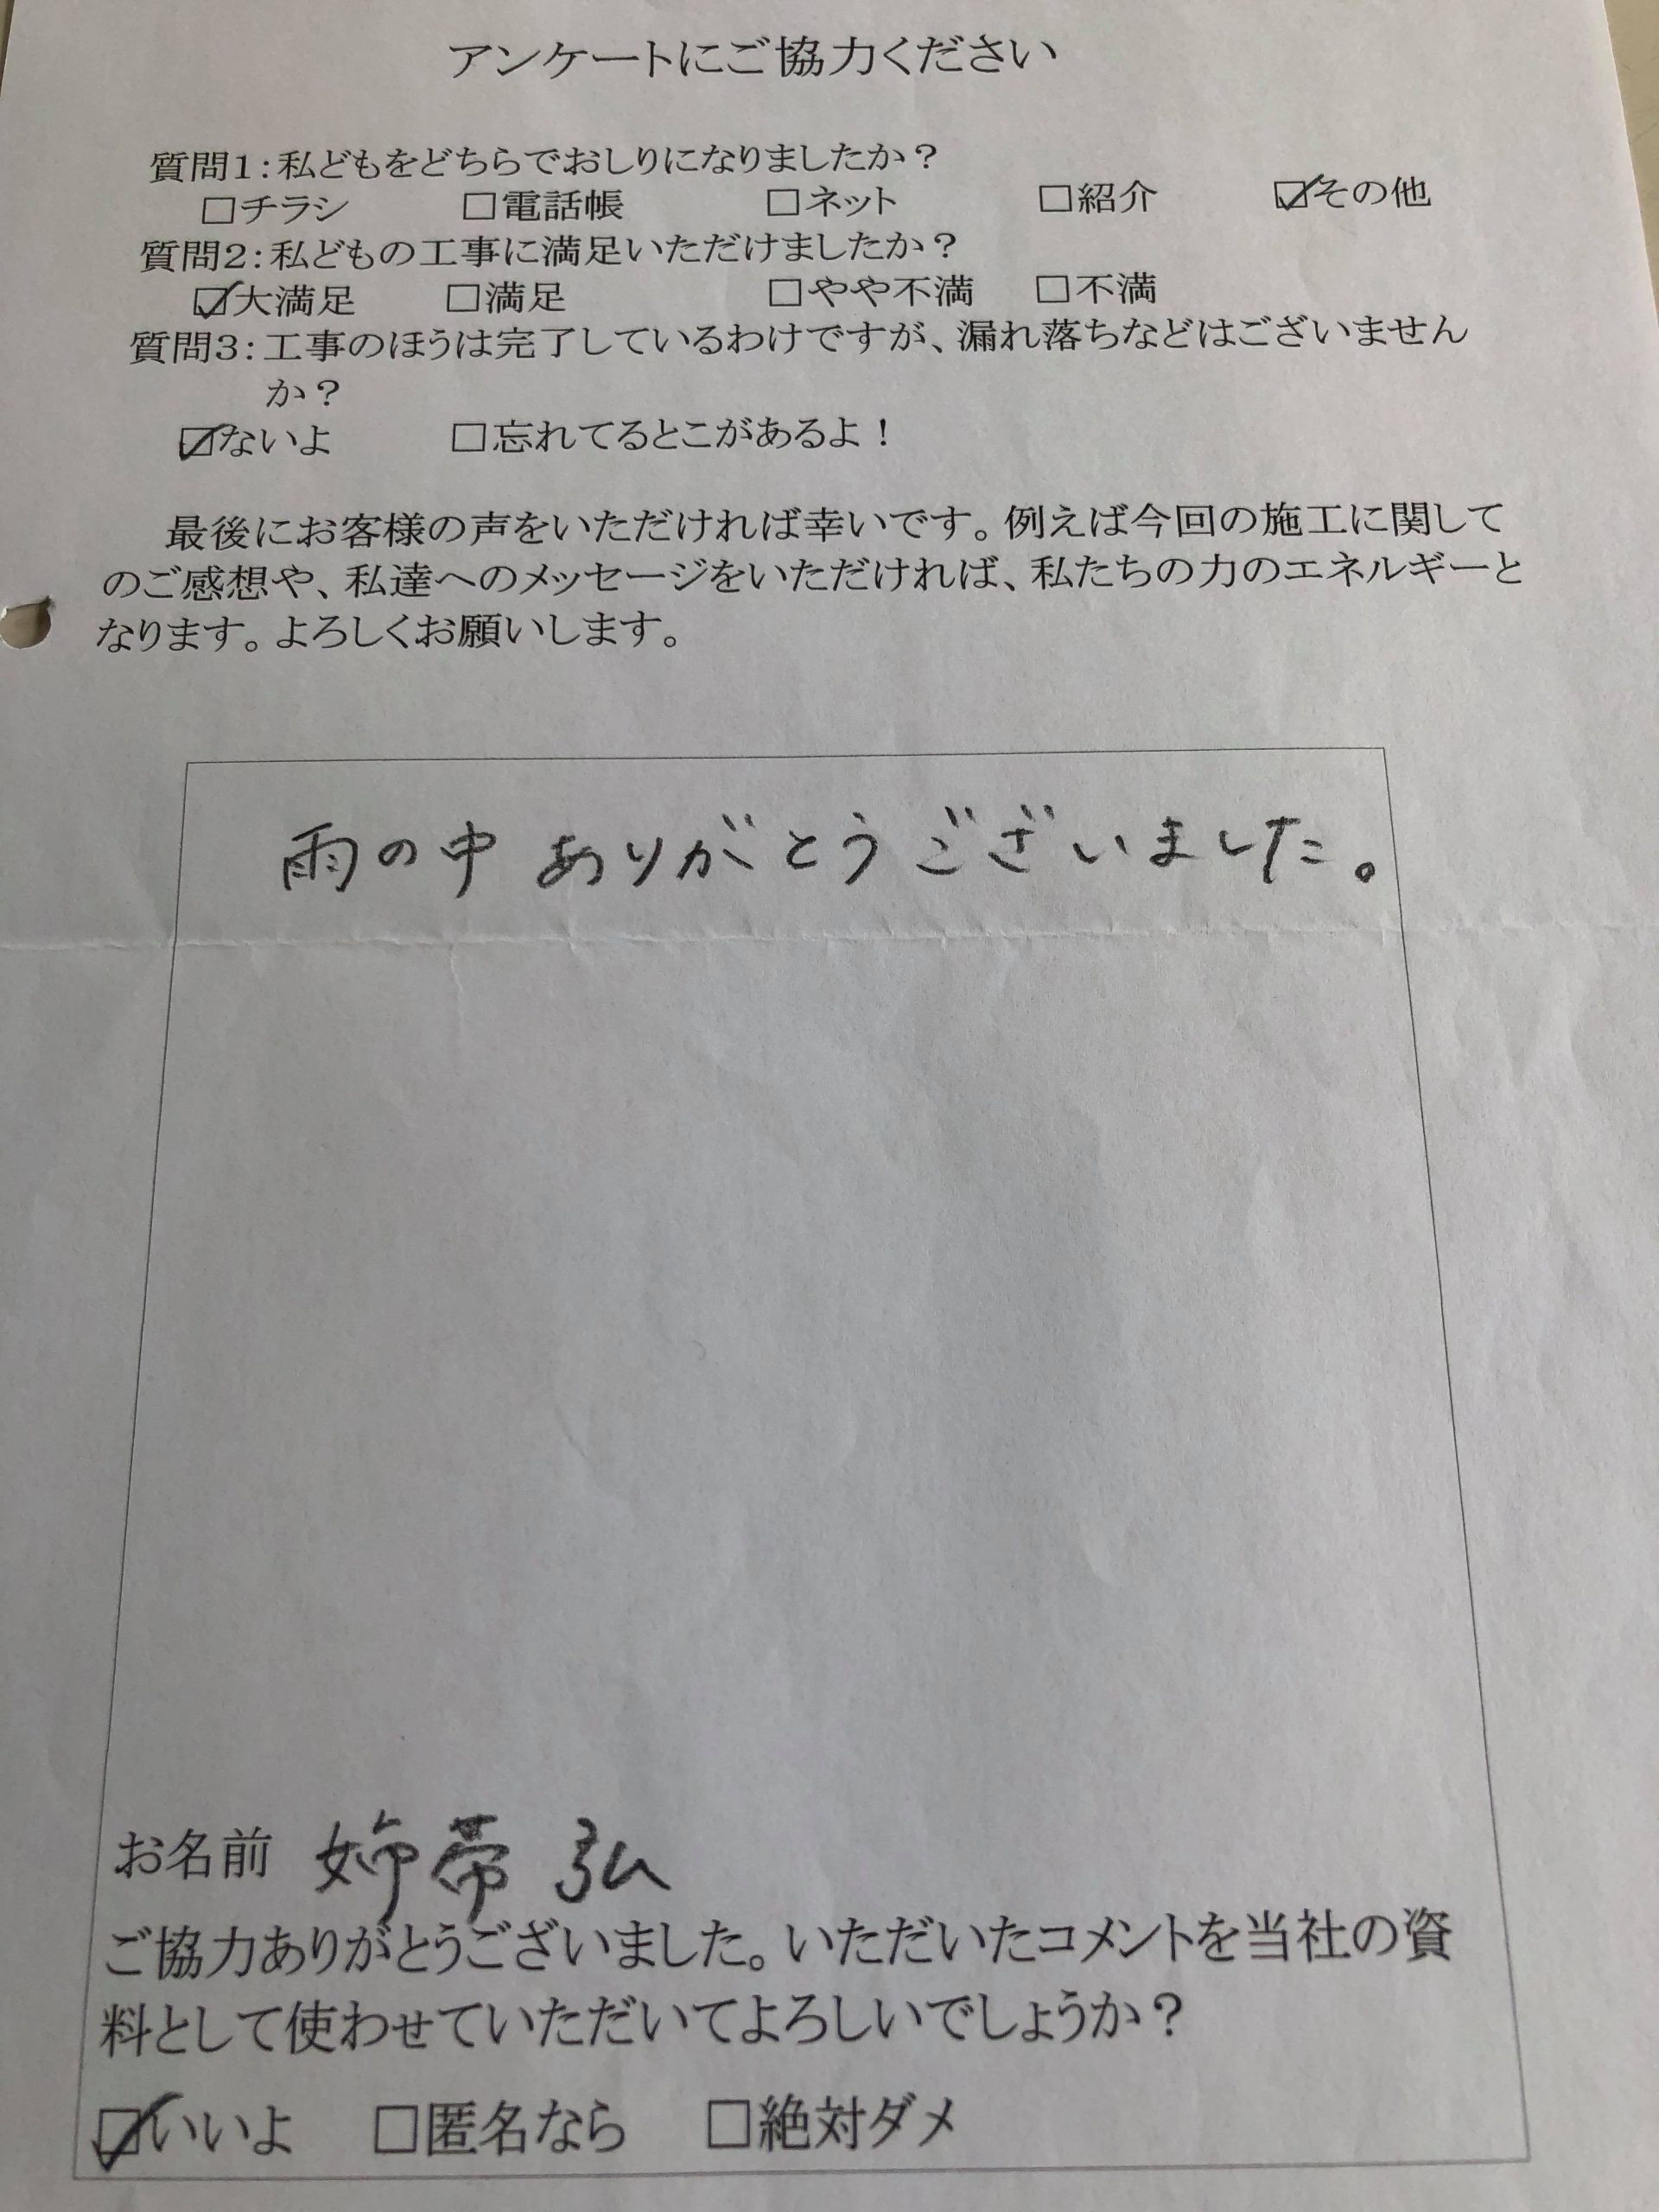 アンケートにご協力ください
質問1：私どもをどちらでおしりになりましたか？
□チラシ □電話帳 □ネット □紹介 ☑その他
質問2：私どもの工事に満足いただけましたか？
☑大満足 □満足 □やや不満 □不満
質問3：工事のほうは完了しているわけですが、漏れ落ちなどはございません
か？
☑ないよ □忘れてるとこがあるよ！
最後にお客様の声をいただければ幸いです。例えば今回の施工に関して
のご感想や、私達へのメッセージをいただければ、私たちの力のエネルギーと
なります。よろしくお願いします。
雨の中 ありがとうございました。
お名前 姉帯 弘
ご協力ありがとうございました。いただいたコメントを当社の資
料として使わせていただいてよろしいでしょうか？
☑いいよ □匿名なら □絶対ダメ